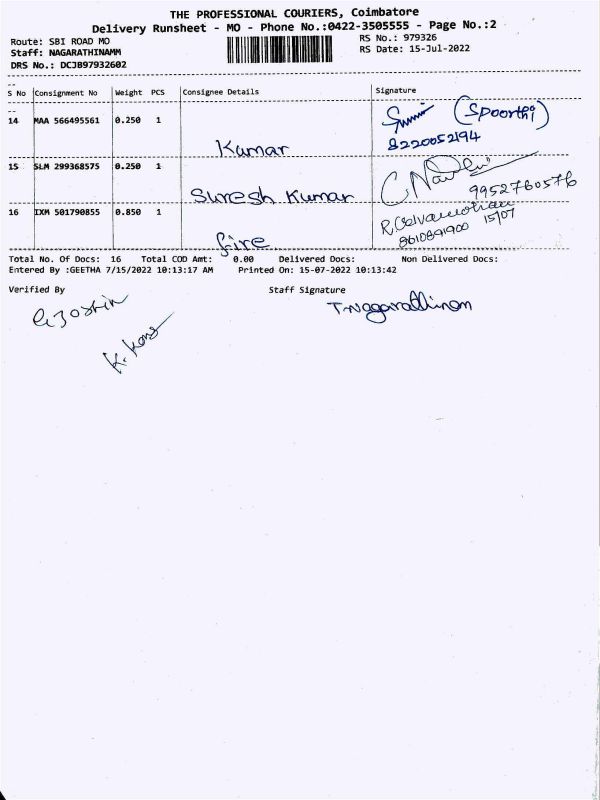 THE PROFESSIONAL COURIERS, Coimbatore
Delivery Runsheet - MO - Phone No.:0422-3505555 - Page No.:2
Route: SBI ROAD MO
RS No.: 979326
Staff: NAGARATHINAMM
RS Date: 15-Jul-2022
DRS No.: DCJ897932602
S No Consignment No Weight PCS Consignee Details Signature
14 MAA 566495561 0.250 1 (Spoorthi)
Kumar 8220052194
15 SLM 299368575 0.250 1
Suresh Kumar 9952760576
16 IXM 501790855 0.850 1
fire 8610891900 15/07
Total No. Of Docs: 16 Total COD Amt: 0.00 Delivered Docs: Non Delivered Docs:
Entered By :GEETHA 7/15/2022 10:13:17 AM Printed On: 15-07-2022 10:13:42
Verified By Staff Signature
T.Nagarathinam